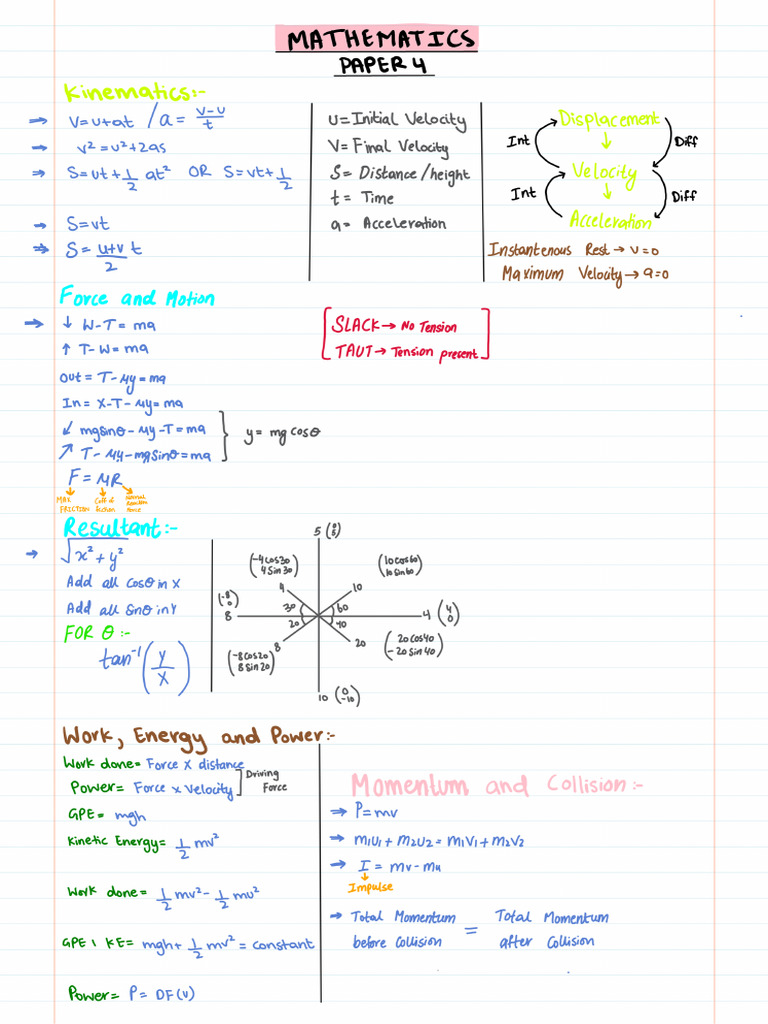 MATHEMATICS
PAPER 4
Kinematics:-
→ V=u+at / a = V-u/t
→ v²=u²+2as
→ S=ut+1/2 at² OR S=vt+1/2
→ S=vt
→ S=u+v/2 t
u=Initial Velocity
V=Final Velocity
S=Distance/height
t=Time
a=Acceleration
Displacement
Int Diff
Velocity
Int Diff
Acceleration
Instantenous Rest→ v=0
Maximum Velocity→ a=0
Force and Motion
→ ↓ W-T=ma
↑ T-W=ma
Out= T-μy=ma
In= X-T-μy=ma
↙ mgsinθ-μy-T=ma
↗ T-μy-mgsinθ=ma
} y=mgcosθ
F=μR
MAX FRICTION
Coff of friction
Normal Reaction Force
[SLACK→ No Tension
TAUT→ Tension present]
Resultant:-
→ √x²+y²
Add all cosθ in X
Add all sinθ in Y
FOR θ:-
tan⁻¹(y/x)
5 (0 5)
(-4cos30 4sin30)
(10cos60 10sin60)
4 10
(-8 0) 30 60
8 4 (4 0)
20 40
8 20
(-8cos20 8sin20)
(20cos40 -20sin40)
10 (0 -10)
Work, Energy and Power:-
Work done= Force X distance
Power= Force x Velocity
] Driving Force
GPE= mgh
Kinetic Energy= 1/2 mv²
Work done= 1/2 mv²-1/2 mu²
GPE, KE= mgh+1/2 mv²=constant
Power= P= DF(v)
Momentum and Collision:-
→ P=mv
→ m1u1+m2u2=m1v1+m2v2
→ I = mv-mu
Impulse
→ Total Momentum before Collision = Total Momentum after Collision